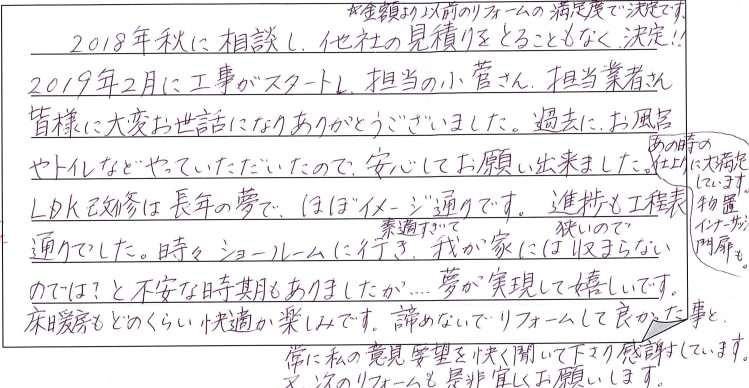 ☆金額より以前のリフォームの満足度で決定です。
2018年秋に相談し、他社の見積りをとることもなく決定!!
2019年2月に工事がスタートし、担当の小菅さん、担当業者さん
皆様に大変お世話になりありがとうございました。過去に、お風呂
やトイレなどやっていただいたので、安心してお願い出来ました。
あの時の
仕上りに大満足
しています。
物置
インナーサッシ
門扉も。
LDK改修は長年の夢で、ほぼイメージ通りです。進捗も工程表
通りでした。時々ショールームに行き、素適すぎて我が家には狭いので収まらない
のでは?と不安な時期もありましたが....夢が実現して嬉しいです。
床暖房もどのくらい快適か楽しみです。諦めないでリフォームして良かった事と、
常に私の意見要望を快く聞いて下さり感謝しています。
又、次のリフォームも是非宜しくお願いします。